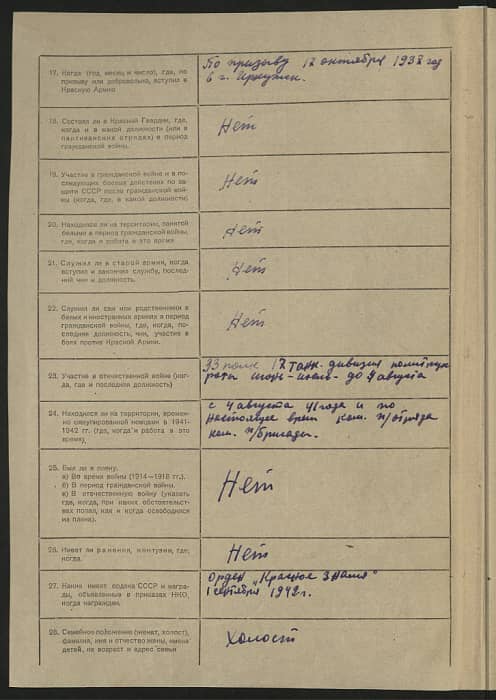 17. Когда (год, месяц и число), где, по
призыву или добровольно, вступил в
Красную Армию
По призыву 12 октября 1938 год
в г. Иркутск.
18. Состоял ли в Красной Гвардии, где,
когда и в какой должности (или в
партизанских отрядах) в период
гражданской войны.
Нет
19. Участие в гражданской войне и в по-
следующих боевых действиях по за-
щите СССР после гражданской вой-
ны (когда, где, в какой должности)
Нет
20. Находился ли на территории, занятой
белыми в период гражданской войны,
где, когда и работа в это время
Нет
21. Служил ли в старой армии, когда
вступил и закончил службу, послед-
ний чин и должность.
Нет
22. Служил ли сам или родственники в
белых и иностранных армиях в период
гражданской войны, где, когда, по-
следняя должность, чин, участие в
боях против Красной Армии.
Нет
23. Участие в отечественной войне (ког-
да, где и последняя должность)
33 полк 17 танк. дивизия политрук
роты июнь-июль - до 4 августа
24. Находился ли на территории, времен-
но оккупированной немцами в 1941-
1942 гг. (где, когда и работа в это
время)
с 4 августа 41 года и по
настоящее время ком. п/отряда
ком. п/бригады.
25. Был ли в плену.
а) Во время войны (1914—1918 гг.).
б) В период гражданской войны.
в) В отечественную войну (указать
где, когда, при каких обстоятельст-
вах попал, как и когда освободился
из плена).
Нет
26. Имеет ли ранения, контузии, где,
когда.
Нет
27. Какие имеет ордена СССР и награ-
ды, объявленные в приказах НКО,
когда награжден.
Орден "Красное Знамя"
1 сентября 1942 г.
28. Семейное положение (женат, холост),
фамилия, имя и отчество жены, имена
детей, их возраст и адрес семьи
Холост